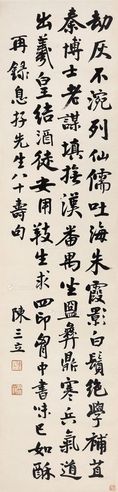 劫灰不涴列仙儒吐海朱霞影白鬚絕學補苴
秦博士老謀填撫漢番禺坐溫彝鼎寒兵氣道
出羲皇結酒徒安用鼓生求四印胷中書味已如酥
再錄息存先生八十壽句
陳三立